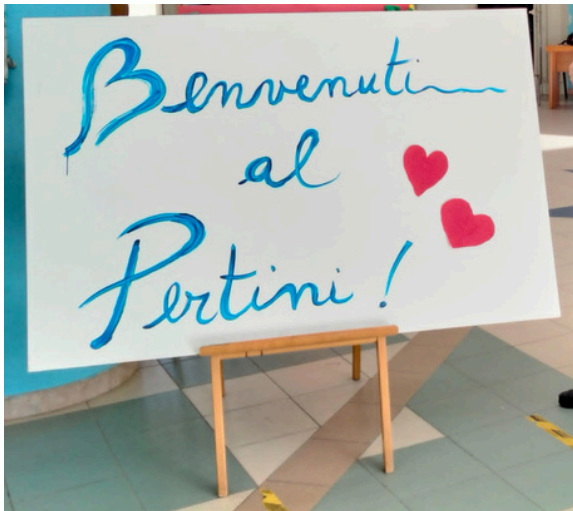 Benvenuti
al
Pertini!